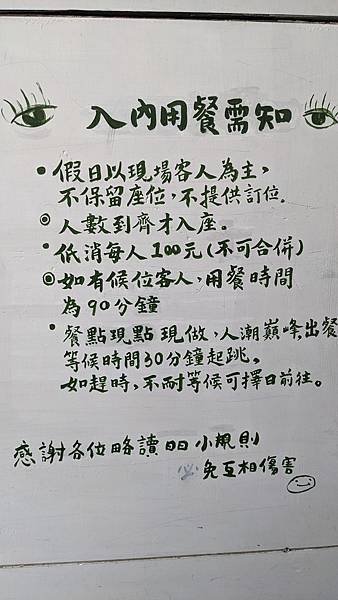 入內用餐需知
• 假日以現場客人為主,
不保留座位,不提供訂位.
◎ 人數到齊才入座。
• 低消每人100元(不可合併)
◎ 如有候位客人,用餐時間
為90分鐘
• 餐點現點現做,人潮巔峰出餐
等候時間30分鐘起跳。
如趕時,不耐等候可擇日前往。
感謝各位略讀 小規則
免互相傷害